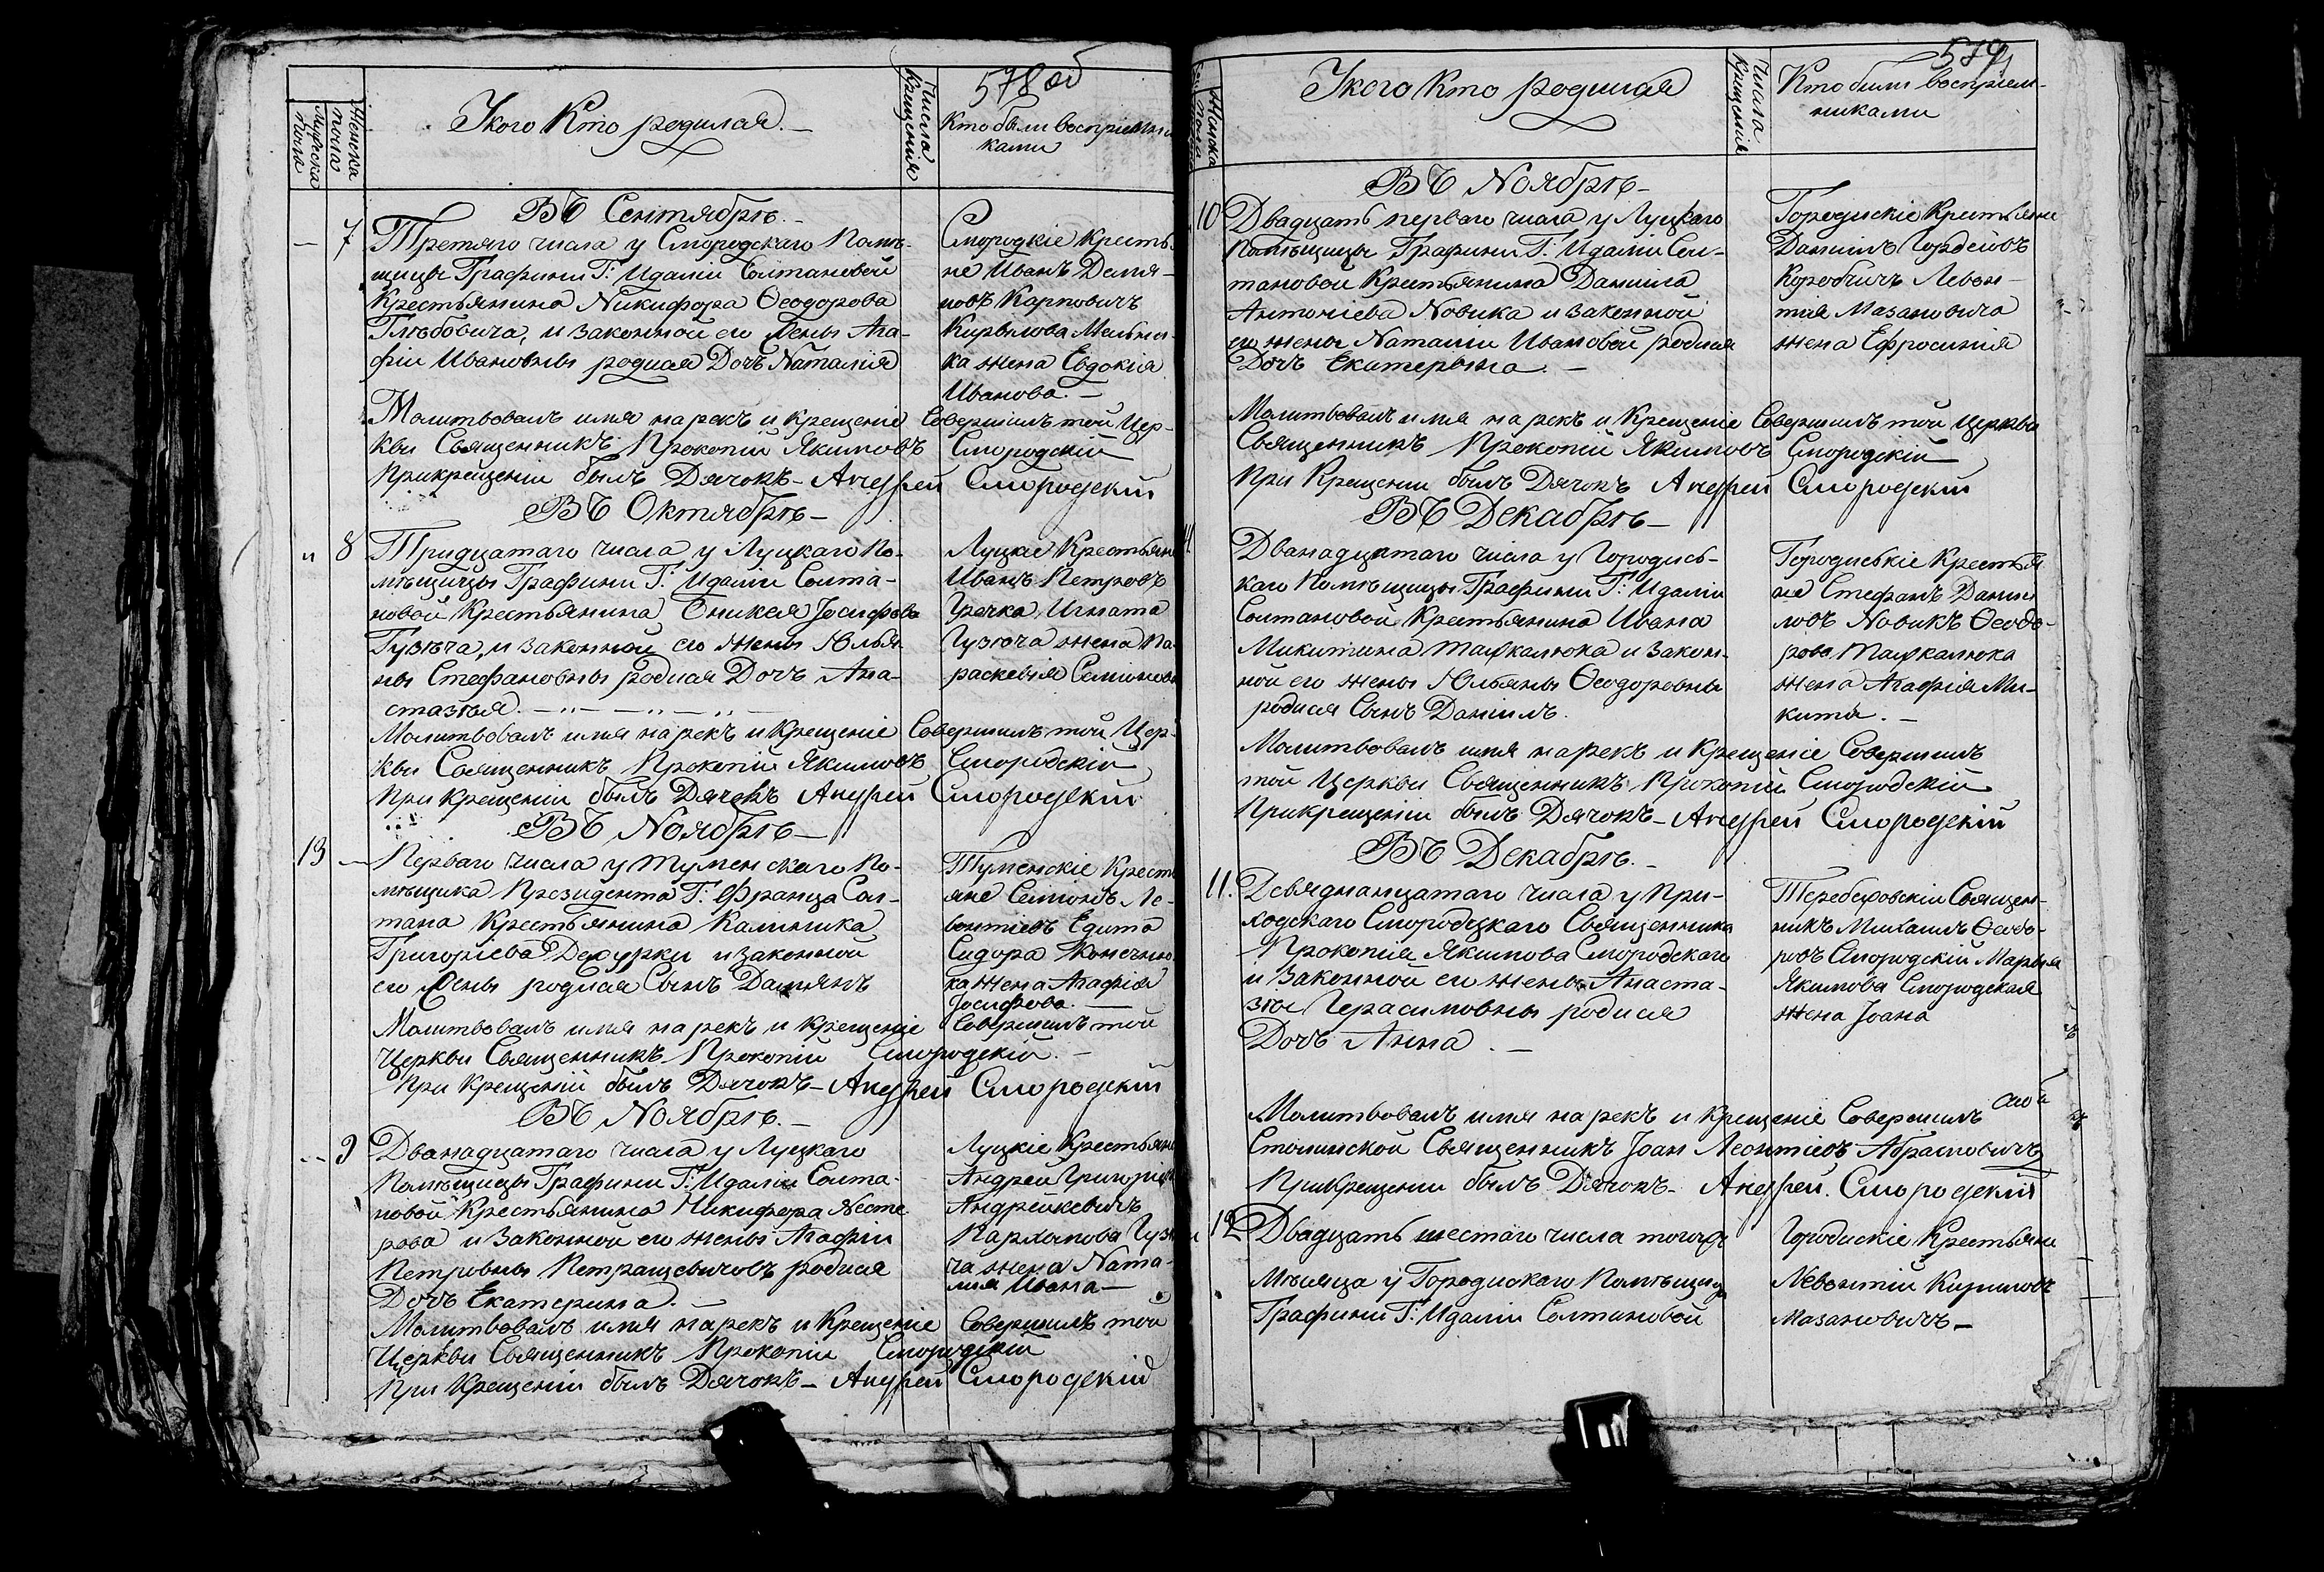 578 об
Женска пола
Мужеска пола
У кого Кто родился.
Числа Крещения
Кто были воспріемни
ками
Въ Сентябрѣ.
7 Третяго числа у Смородскаго Помѣ-
щицы Графини Г: Идаліи Солтановой
Крестьянина Никифора Ѳеодорова
Глѣбовича, и законной его жены Ага-
фіи Ивановны родися Дочь Наталія
Смородкіе Кресть-
не Иванъ Демя-
новъ Карповичъ
Кирылова Мельни-
ка жена Евдокія
Иванова.
Молитвовалъ имя нарекъ и крещеніе Совершилъ той Цер-
кви Священникъ Прокопій Якимовъ Смородскій
При крещеніи былъ Дячокъ - Андрей Смородскій
Въ Октябрѣ
8 Тридцатаго числа у Луцкаго По-
мѣщицы Графини Г: Идаліи Солта-
новой Крестьянина Оникея Іосифова
Гузѣча, и законной его жены Юлья-
ны Стефановны родися Дочъ Ана-
стазѣя.
Луцкіе Крестьян
Иванъ Петровъ
Гречка Игната
Гузѣча жена Па-
раскевія Семіонов
Молитвовалъ имя нарекъ и Крещеніе Совершилъ той Цер-
кви Священникъ Прокопій Якимовъ Смородскій
При Крещеніи былъ Дячокъ Андрей Смородскій
Въ Ноябрѣ
13 Перваго числа у Туменскаго По-
мѣщика Президента Г: Франца Сол-
тана Крестьянина Калиника
Григоріева и законной
его жены родися Сынъ Даміянъ
Туменскіе Кресть
яне Семіонъ Ле-
вонтіевъ Едита
Сидора
ка жена Агафія
Іосифова.
Молитвовалъ имя нарекъ и крещеніе Совершилъ той
Церкви Священникъ Прокопій Смородскій.
При Крещеній былъ Дячокъ - Андрей Смородскій
Въ Ноябрѣ.
9 Дванадцатаго числа у Луцкаго
Помѣщицы Графини Г: Идаліи Солта-
новой Крестьянина Никифора Несте
рова и Законной его жены Агафіи
Петровны Петрашевичовъ родися
Дочъ Екатерина.
Луцкіе Крестьян
Андрей Григорі
Андрейкевичъ
Пархомова Гузѣ
ча жена Ната-
лия Ивана
Молитвовалъ имя нарекъ и Крещеніе Совершилъ той
Церкви Священникъ Прокопій Смородскій
При Крещеніи былъ Дячокъ - Андрей Смородскій
579
Женска пола
У кого Кто родился
Числа Крещенія
Кто были воспріем-
никами
Въ Ноябрѣ
10 Двадцать перваго числа у Луцкаго
Помѣщицы Графини Г: Идаліи Сол-
тановой Крестьянина Даниила
Антоніева Новика и законной
его жены Наталіи Ивановой родися
Дочъ Екатерына.
Городискіе Крестьяне
Даниилъ Гордеіовъ
Коробчичъ Левон-
тія Мазановича
жена Ефросинія
Молитвовалъ имя нарекъ и Крещеніе Совершилъ той Церкви
Священникъ Прокопій Якимовъ Смородскій
При Крещеніи былъ Дячокъ Андрей Смородскій
Въ Декабрѣ
Дванадцатаго числа у Городись-
каго Помѣщицы Графини Г: Идаліи
Солтановой Крестьянина Ивана
Микитина Пашкалюка и Закон-
ной его жены Юльяны Ѳеодоровны
родися Сынъ Данилъ.
Городиськіе Крестья
не Стефанъ Дани
ловъ Новикъ Ѳеодо-
рова Пашкалюка
жена Агафія Ми-
кита.
Молитвовалъ имя нарекъ и Крещеніе Совершилъ
той Церкви Священникъ Прокопій Смородскій
При крещеніи былъ Дячокъ - Андрей Смородскій
Въ Декабрѣ.
11. Девяднанцатаго числа у При-
ходскаго Смородцкаго Священника
Прокопія Якимова Смородскаго
и Законной его жены Анаста-
зѣи Герасимовны родися
Дочъ Анна.
Теребежовскій Священ-
никъ Михаилъ Ѳеодо-
ровъ Смородскій Марыя
Якимова Смородская
жена Іоана
Молитвовалъ имя нарекъ и Крещеніе Совершилъ
Столинской Священникъ Іоан Леонтіевъ Абрамовичъ
При Крещеніи былъ Дячокъ - Андрей Смородскій
12 Двадцать шестаго числа тогожъ
Мѣсяца у Городискаго Помѣщицы
Графини Г: Идаліи Солтановой
Городискіе Крестьяне
Левонтій Кириловъ
Мазановичъ